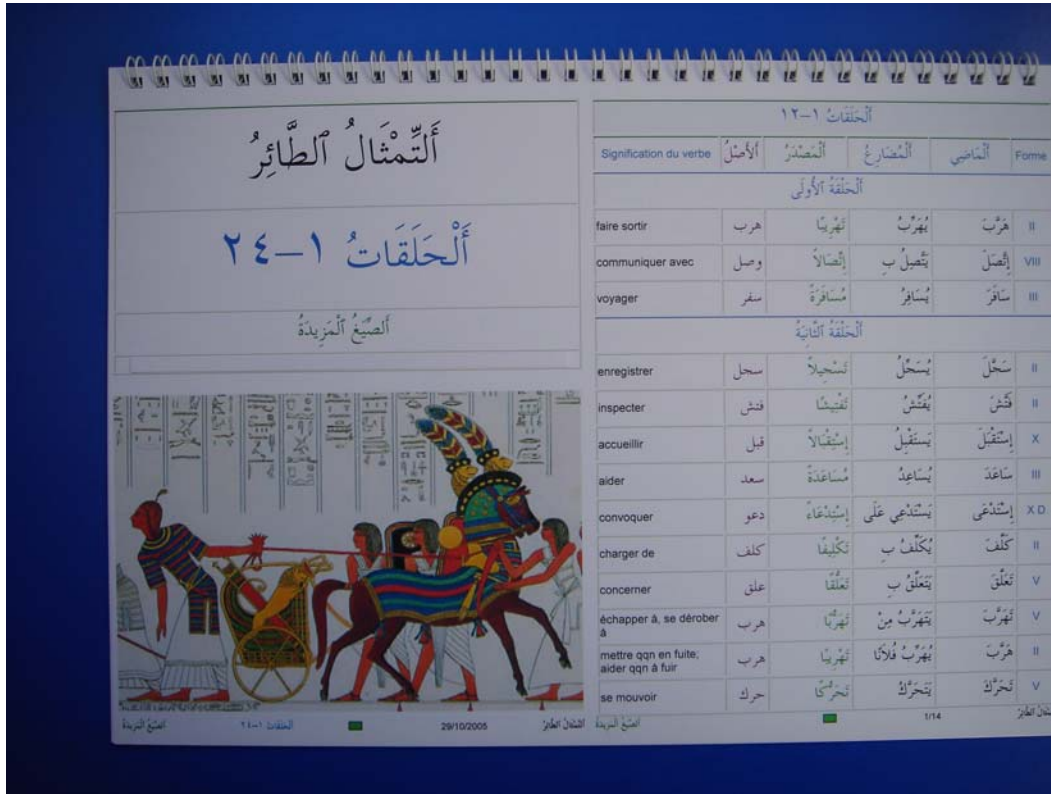 أَلتِّمْثَالُ ٱلطَّائِرُ
أَلْحَلَقَاتُ ١–٢٤
أَلصِّيَغُ ٱلْمَزِيدَةُ
أَلصِّيَغُ ٱلْمَزِيدَةُ أَلْحَلَقَاتُ ١–٢٤ 29/10/2005 أَلتِّمْثَالُ ٱلطَّائِرُ
أَلْحَلَقَاتُ ١–١٢
Signification du verbe أَلأَصْلُ أَلْمَصْدَرُ أَلْمُضَارِعُ أَلْمَاضِي Forme
أَلْحَلْقَةُ ٱلأُولَى
faire sortir هرب تَهْرِيبًا يُهَرِّبُ هَرَّبَ II
communiquer avec وصل إِتِّصَالاً يَتَّصِلُ ب إِتَّصَلَ VIII
voyager سفر مُسَافَرَةً يُسَافِرُ سَافَرَ III
أَلْحَلْقَةُ ٱلثَّانِيَةُ
enregistrer سجل تَسْجِيلاً يُسَجِّلُ سَجَّلَ II
inspecter فتش تَفْتِيشًا يُفَتِّشُ فَتَّشَ II
accueillir قبل إِسْتِقْبَالاً يَسْتَقْبِلُ إِسْتَقْبَلَ X
aider سعد مُسَاعَدَةً يُسَاعِدُ سَاعَدَ III
convoquer دعو إِسْتِدْعَاءً يَسْتَدْعِي عَلَى إِسْتَدْعَى X D
charger de كلف تَكْلِيفًا يُكَلِّفُ ب كَلَّفَ II
concerner علق تَعَلُّقًا يَتَعَلَّقُ ب تَعَلَّقَ V
échapper à, se dérober
à هرب تَهَرُّبًا يَتَهَرَّبُ مِنْ تَهَرَّبَ V
mettre qqn en fuite;
aider qqn à fuir هرب تَهْرِيبًا يُهَرِّبُ فُلاَنًا هَرَّبَ II
se mouvoir حرك تَحَرُّكًا يَتَحَرَّكُ تَحَرَّكَ V
أَلصِّيَغُ ٱلْمَزِيدَةُ 1/14